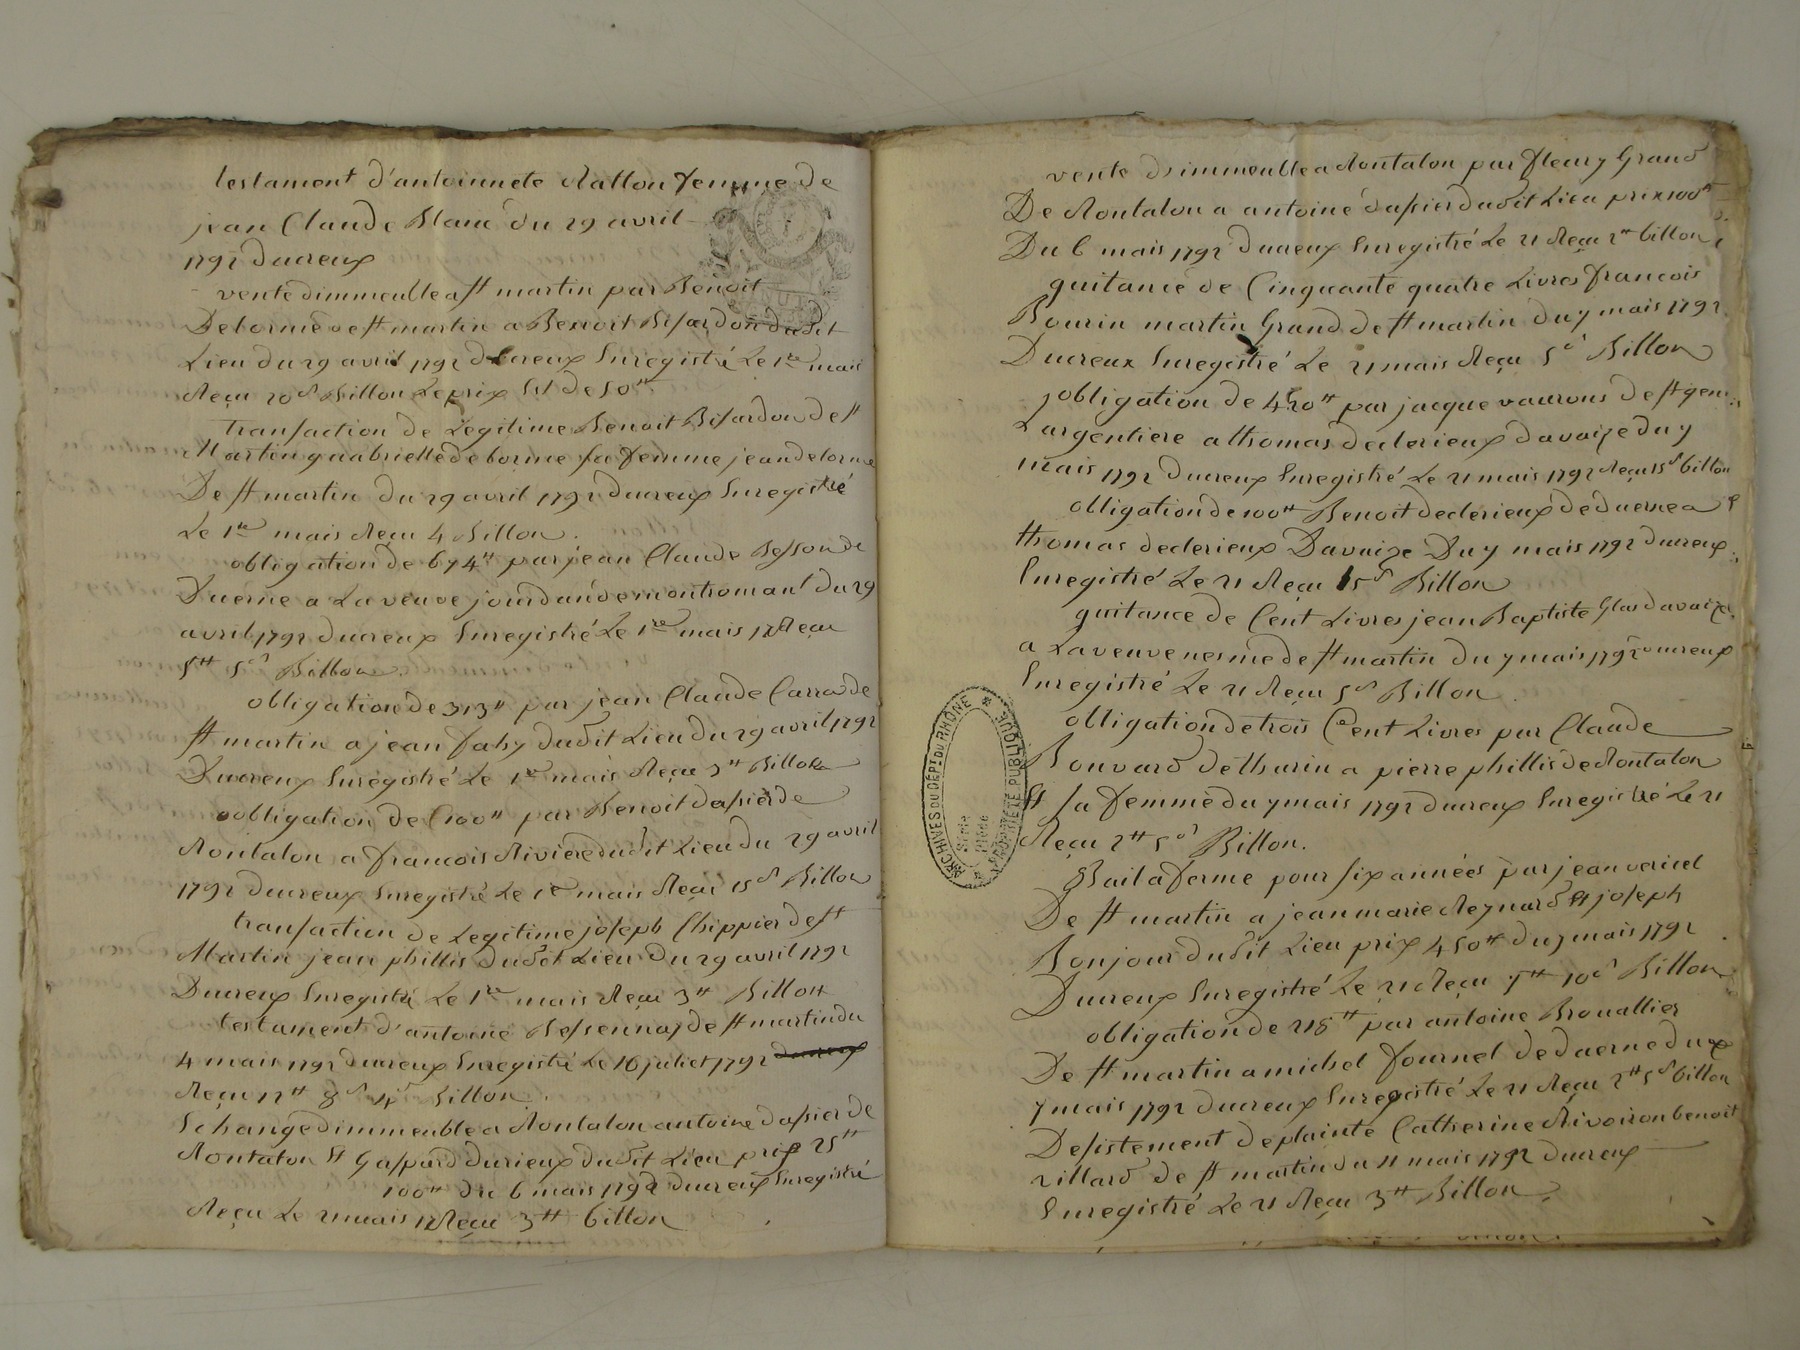 testament d'antoinnete Ratton femme de
jean Claude Blanc du 29 avril
1792 ducreux
vente dimmeuble a st martin par Benoit
Delorme de st martin a Benoit Bisardon dudit
Lieu du 29 avril 1792 ducreux Enregistré Le 1re mais
Reçu 20s Billon Le prix Est de 50tt
transaction de Legitime Benoit Bisardon de st
Martin gaabrielle delorme sa femme jean delorme
De st martin du 29 avril 1792 ducreux Enregistré
Le 1re mais Reçu 4 Billon.
obligation de 674tt par jean Claude Besson de
Duerne a La veuve jourdan de montromant du 29
avril 1792 ducreux Enregistré Le 1re mais Reçu
5tt 5s Billon.
obligation de 313tt par jean Claude Carra de
st martin a jean faby dudit Lieu du 29 avril 1792
Ducreux Enregistré Le 1re mais Reçu 3tt Billon
obligation de 100tt par Benoit dassier de
Rontalon a francois Riviere dudit Lieu du 29 avril
1792 ducreux Enregistré Le 1re mais Reçu 15s Billon
transaction de Legitime joseph Chippier de st
Martin jean phillis dudit Lieu du 29 avril 1792
Ducreux Enregistré Le 1re mais Reçu 3tt Billon
testament d'antoine Bessennay de st martin du
4 mais 1792 ducreux Enregistré Le 16 juliet 1792 ducreux
Reçu 12tt 8s Billon.
Echange dimmeuble a Rontalon antoine dassier de
Rontalon Et Gaspard durieux dudit Lieu prix 25tt
100tt du 6 mais 1792 ducreux Enregistré
Reçu Le 21 mais Reçu 3tt billon
vente dimmeuble a Rontalon par fleury Grand
De Rontalon a antoine dassier dudit Lieu prix 100tt
Du 6 mais 1792 ducreux Enregistré Le 21 Reçu 2tt billon
quitance de Cinquante quatre Livres francois
Bourin martin Grand de st martin du 7 mais 1792
Ducreux Enregistré Le 21 mais Reçu 5s Billon
obligation de 420tt par jacque vaurons de st geni
Largentiere a thomas declerieux davaize du 7
mais 1792 ducreux Enregistré Le 21 mais 1792 Reçu 15s billon
obligation de 100tt Benoit declerieux de duerne a
thomas declerieux Davaize Du 7 mais 1792 ducreux
Enregistré Le 21 Reçu 15s Billon
quitance de Cent Livres jean Baptiste Glas davaize
a La veuve nesme de st martin du 7 mais 1792 ducreux
Enregistré Le 21 Reçu 5s Billon.
obligation de trois Cent Livres par Claude
Bouvard de thurin a pierre phillis de Rontalon
Et sa femme du 7 mais 1792 ducreux Enregistré Le 21
Reçu 2tt 5s Billon.
Bail a ferme pour six années par jean vericel
De st martin a jean marie Reynard Et joseph
Bonjour dudit Lieu prix 450tt du 7 mais 1792
Ducreux Enregistré Le 21 Reçu 7tt 10s Billon
obligation de 218tt par antoine Brouallier
De st martin a michel fournel de duerne du
7 mais 1792 ducreux Enregistré Le 21 Reçu 2tt 5s billon
Desistement de plainte Catherine Rivoiron benoit
villard de st martin du 11 mais 1792 ducreux
Enregistré Le 21 Reçu 3tt Billon.
ARCHIVES DU DÉPt DU RHÔNE
PROPRIÉTÉ PUBLIQUE